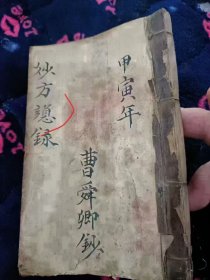 甲寅年
曹舜卿鈔
妙方總録